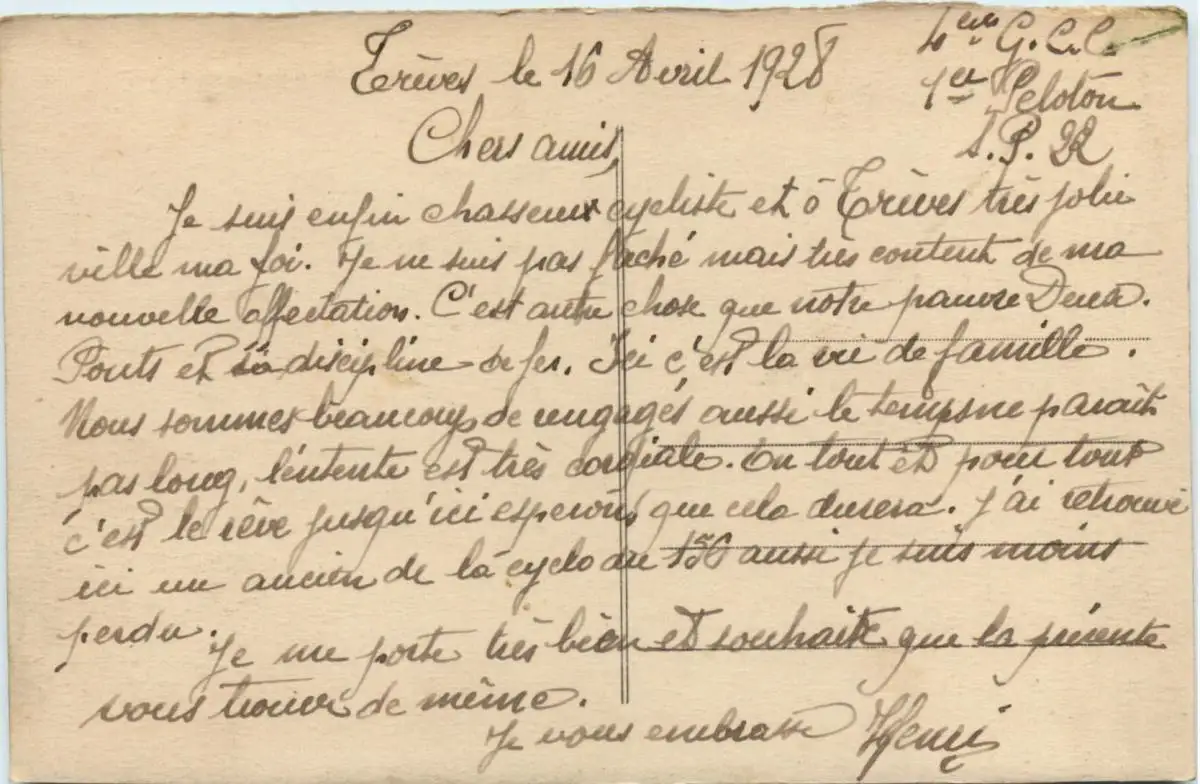 Trèves le 16 Avril 1928
4em G.C.C.
1er Peloton
S.P. 22
Chers amis,
Je suis enfin chasseur cycliste et à Trèves très jolie
ville ma foi. Je ne suis pas fâché mais très content de ma
nouvelle affectation. C'est autre chose que notre pauvre Deux.
Ponts et sa discipline de fer. Ici c'est la vie de famille.
Nous sommes beaucoup de rengagés aussi le temps ne parait
pas long, l'entente est très cordiale. En tout et pour tout
c'est le rêve jusqu'ici esperons que cela durera. J'ai retrouvé
ici un ancien de la cyclo du 156 aussi je suis moins
perdu.
Je me porte très bien et souhaite que la présente
vous trouve de même.
Je vous embrasse Henri